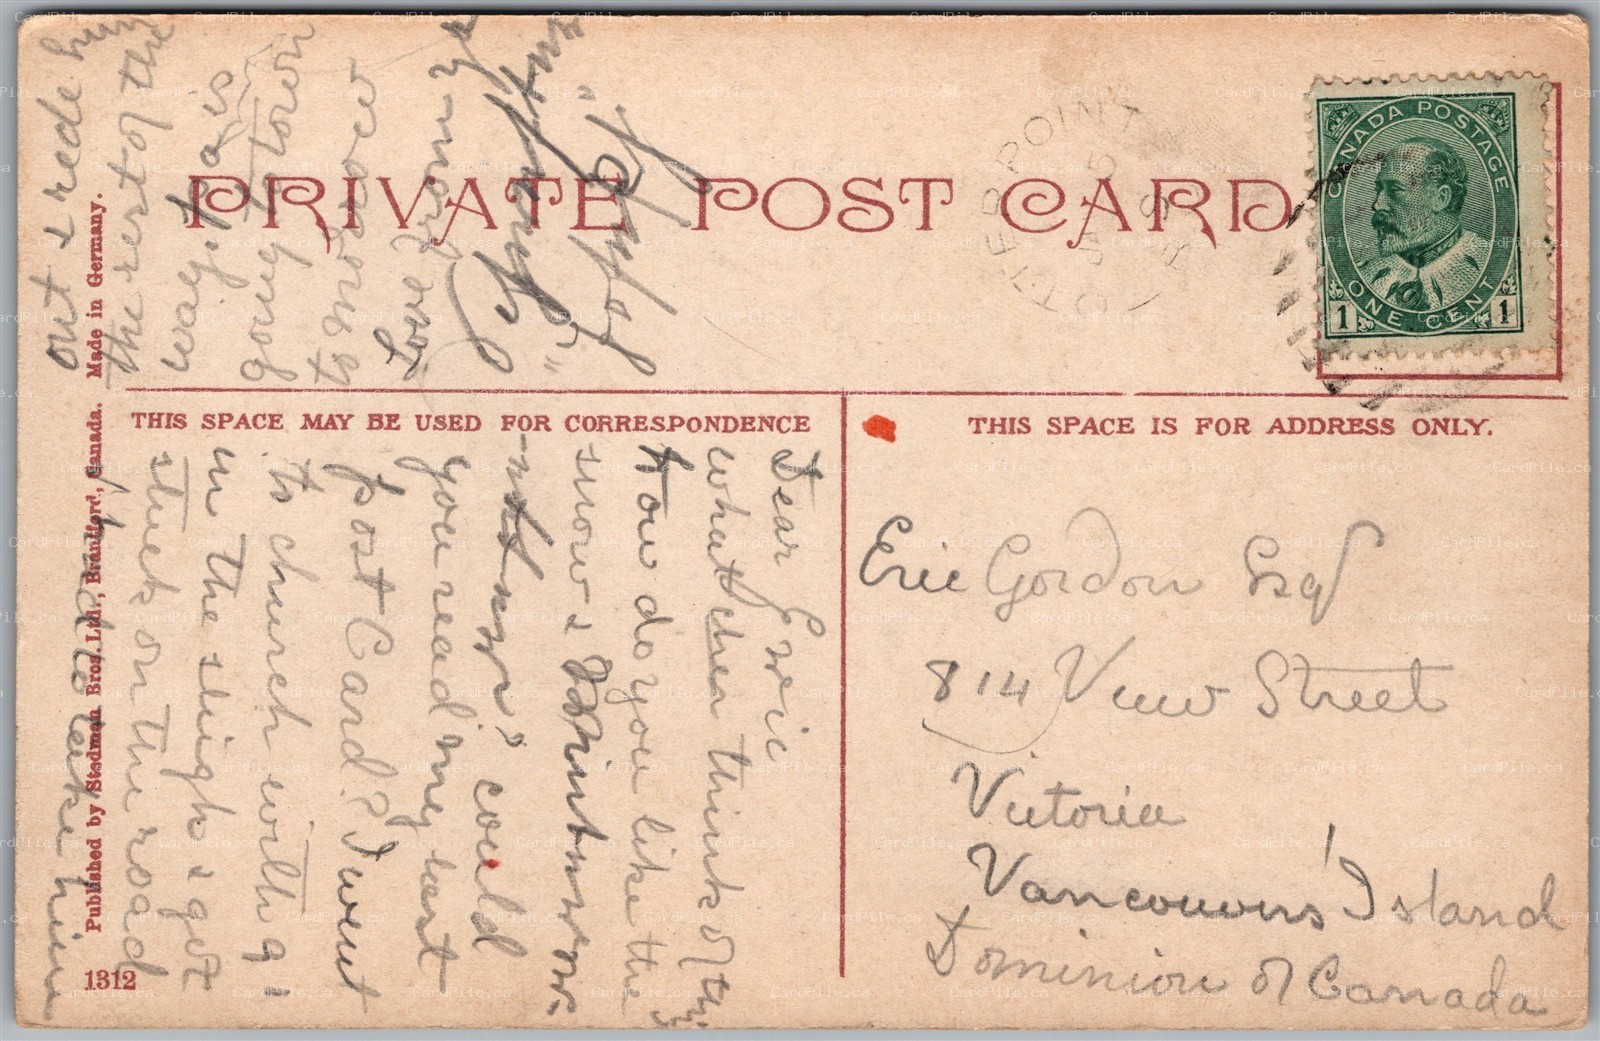 PRIVATE POST CARD
CANADA POSTAGE
ONE CENT
1 1
OTTER POINT
5
THIS SPACE MAY BE USED FOR CORRESPONDENCE
THIS SPACE IS FOR ADDRESS ONLY.
Eric Gordon Esq
814 View Street
Victoria
Vancouvers Island
Dominion of Canada
Dear Eric
what cher think of this
How do you like the
snow &
could
you read my last
post Card? I went
to church with g.
in the sleigh & got
stuck on the road
take him
out & rede
the rest of the
way. Pa is
going town
to
Published by Stedman Bros. Ltd., Brantford, Canada. Made in Germany.
1312
CardPile.ca